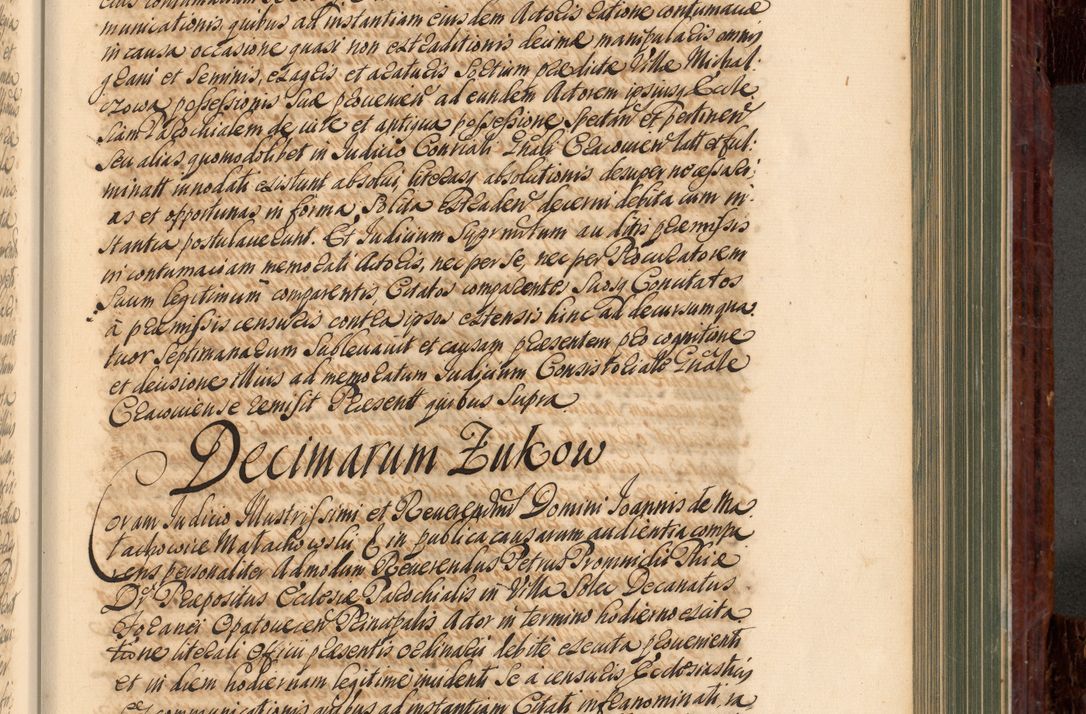 municationis quibus ad instantiam eiusdem Actoris ratione contumaciæ
in causa occasione quasi non extraditionis decimæ manipularis omnis
grani et seminis, ex agris et areaturis Sortium prædictæ Villæ Michal-
czowa possessionis suæ provenien. ad eundem Actorem ipsiusq Eccle
siam Parochialem de iure et antiqua possessione spectan. et pertinen.
seu alias quomodolibet in Judicio Consriali Gnali Cracovien. latt et ful-
minatt innodati existunt absolui, literasq absolutionis desuper necessari-
as et opportunas in forma solita extraden. decerni debita cum in-
stantia postulaverunt. Et Judicium Suprmttum auditis præmissis
in contumaciam memorati Actoris, nec per se, nec per Procuratorem
suum legitimum comparentis, Citatos comparentes suosq Concitatos
à præmissis censuris contra ipsos extensis hinc ad decursum qua-
tuor Septimanarum sublevavit et causam præsentem pro cognitione
et decisione illius ad memoratum Judicium Consistoriale Gnale
Cracoviense remisit Præsentt quibus supra
Decimarum Żukow
Coram Judicio Illustrissimi et Reverendmi Domini Joannis de Ma
łachowice Małachowski E in publica causarum audientia compa
rens personaliter Admodum Reverendus Petrus Pronunicii Phiæ
Dr. Præpositus Ecclesiæ Parochialis in Villa Decanatus
Opatovecen. Principalis Actor in termino hodierno ex cita
tione literali Officii præsentis ordinarii debite executa provenienti
et in diem hodiernam legitime incidenti se a censuris Ecclesiasticis
Excommunicationis quibus ad instantiam Citati infranominati, ra